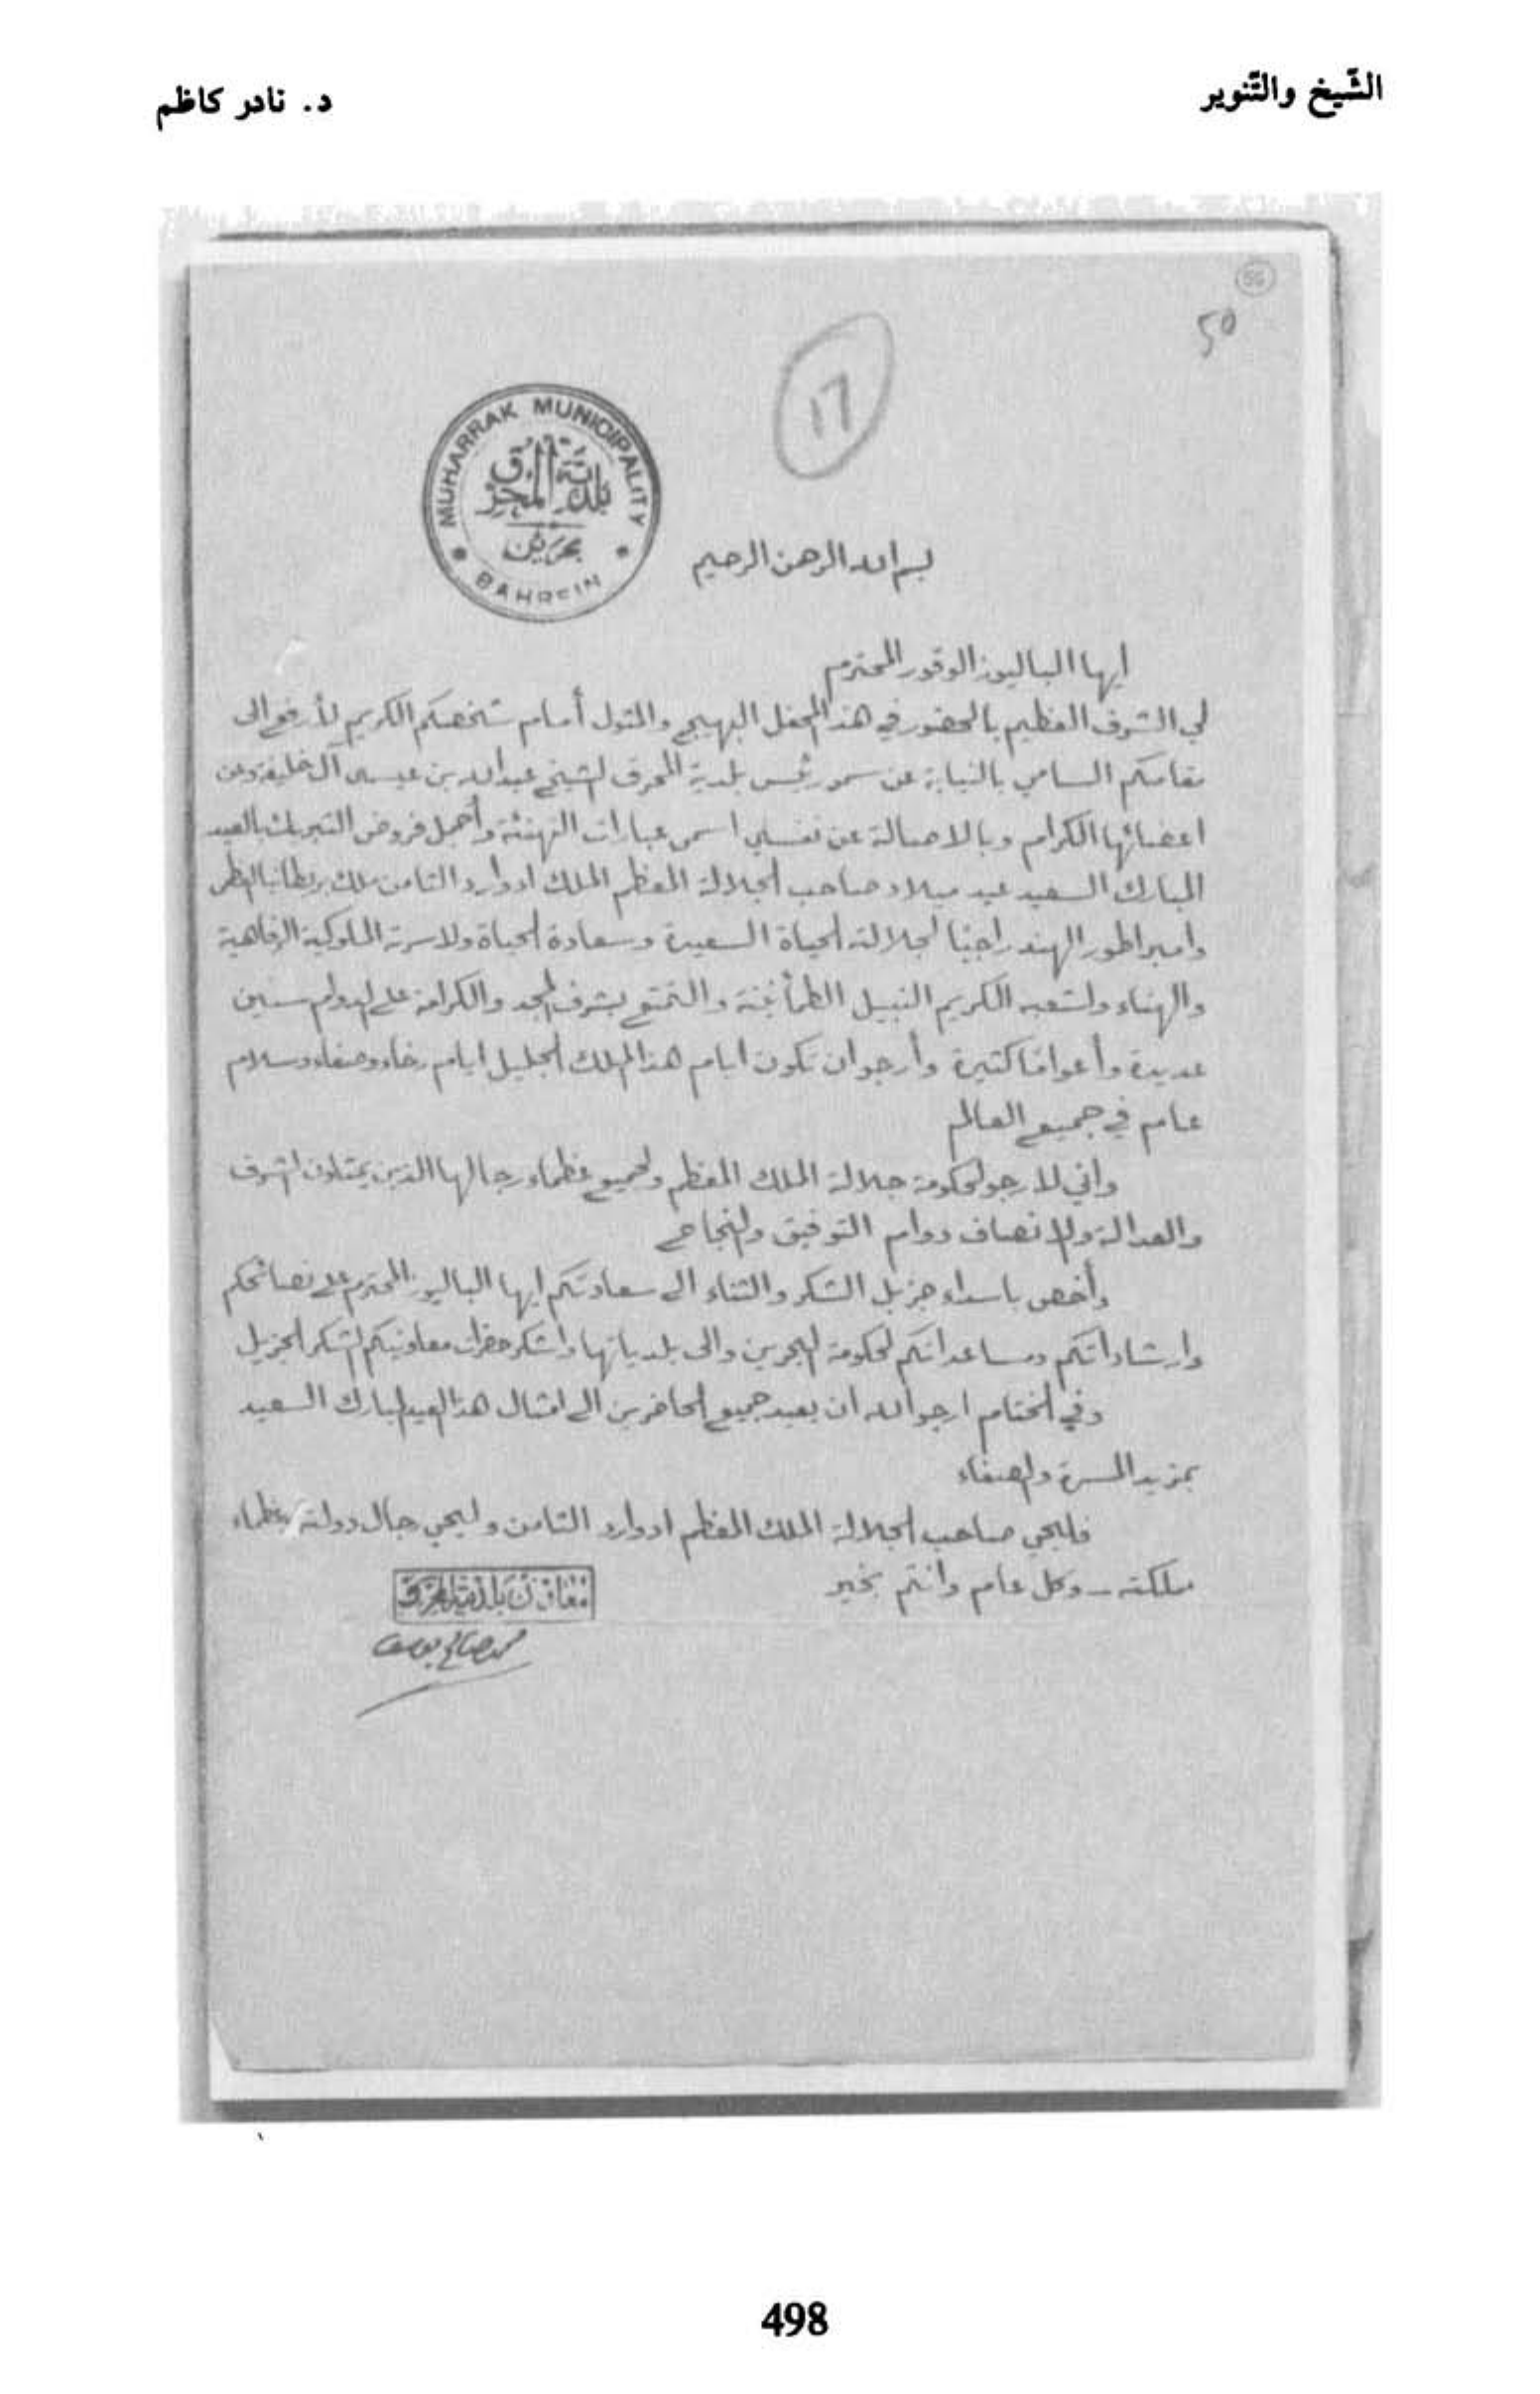 الشّيخ والتّنوير
د. نادر كاظم
56
50
17
MUHARRAK MUNICIPALITY
بلدية المحرق
بحرين
BAHREIN
بسم الله الرحمن الرحيم
ايها الباليوز الوقور المحترم
لي الشرف العظيم بالحضور في هذا المحفل البهيج والمثول أمام شخصكم الكريم لأرفع الى
مقامكم السامي بالنيابة عن سمو رئيس بلدية المحرق الشيخ عبدالله بن عيسى آل خليفة وعن
اعضائها الكرام وبالاصالة عن نفسي اسمى عبارات التهنئة وأجمل فروض التبريك بالعيد
المبارك السعيد عيد ميلاد صاحب الجلالة المعظم الملك ادوارد الثامن ملك بريطانيا العظمى
وامبراطور الهند راجيًا لجلالته الحياة السعيدة وسعادة الحياة ولاسرته الملوكية الرفاهية
والهناء ولشعبه الكريم النبيل الطمأنينة والتمتع بشرف المجد والكرامة على الدوام سنين
عديدة وأعوامًا كثيرة وأرجو ان تكون ايام هذا الملك الجليل ايام رخاء وصفاء وسلام
عام في جميع العالم
واني لارجو لحكومة جلالة الملك المعظم ولجميع عظماء رجالها الذين يمثلون الشرف
والعدالة والانصاف دوام التوفيق والنجاح
وأخص باسداء جزيل الشكر والثناء الى سعادتكم ايها الباليوز المحترم على نصائحكم
وارشاداتكم ومساعداتكم لحكومة البحرين والى بلدياتها واشكر حضرات معاونيكم الشكر الجزيل
وفي الختام ارجو الله ان يعيد جميع الحاضرين الى امثال هذا العيد المبارك السعيد
بمزيد المسرة والصفاء
فليحي صاحب الجلالة الملك المعظم ادوارد الثامن وليحي رجال دولته وعظماء
مملكته - وكل عام وانتم بخير
معاون بلدية المحرق
محمد صالح يوسف
498